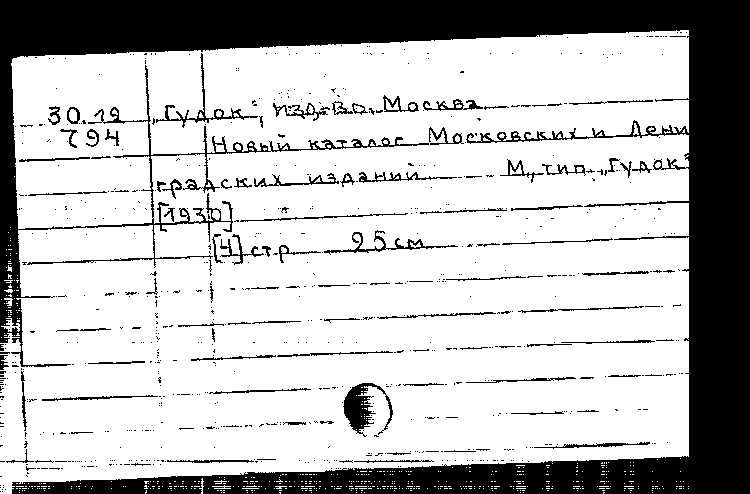 30.12 „Гудок", изд-во, Москва.
794 Новый каталог Московских и Лени
градских изданий М., тип. „Гудок"
[1930]
[4] стр. 25 см